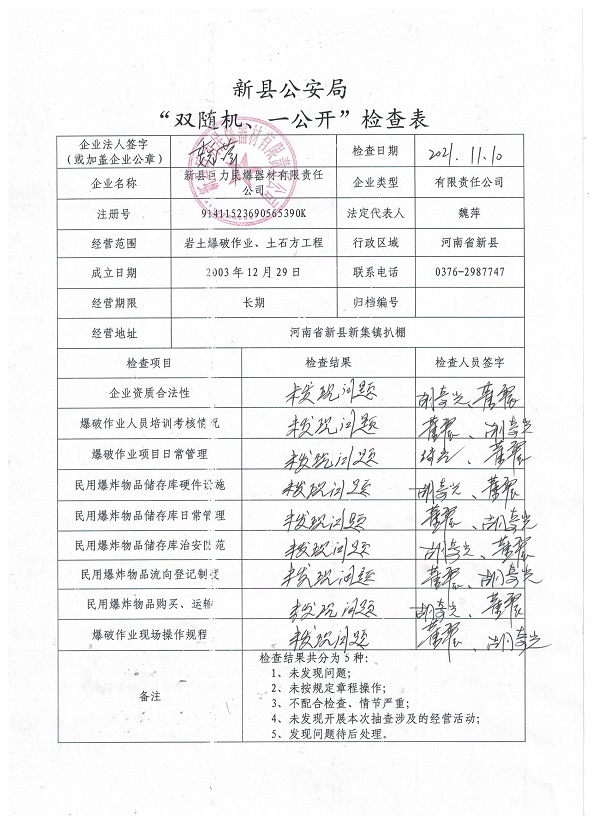 新县公安局
“双随机、一公开”检查表
企业法人签字
（或加盖企业公章）
检查日期 2021.11.10
企业名称 新县巨力民爆器材有限责任
公司
企业类型 有限责任公司
注册号 91411523690565390K 法定代表人 魏萍
经营范围 岩土爆破作业、土石方工程 行政区域 河南省新县
成立日期 2003年12月29日 联系电话 0376-2987747
经营期限 长期 归档编号
经营地址 河南省新县新集镇扒棚
检查项目 检查结果 检查人员签字
企业资质合法性 未发现问题
爆破作业人员培训考核情况 未发现问题
爆破作业项目日常管理 未发现问题
民用爆炸物品储存库硬件设施 未发现问题
民用爆炸物品储存库日常管理 未发现问题
民用爆炸物品储存库治安防范 未发现问题
民用爆炸物品流向登记制度 未发现问题
民用爆炸物品购买、运输 未发现问题
爆破作业现场操作规程 未发现问题
备注
检查结果共分为5种：
1、未发现问题；
2、未按规定章程操作；
3、不配合检查、情节严重；
4、未发现开展本次抽查涉及的经营活动；
5、发现问题待后处理。